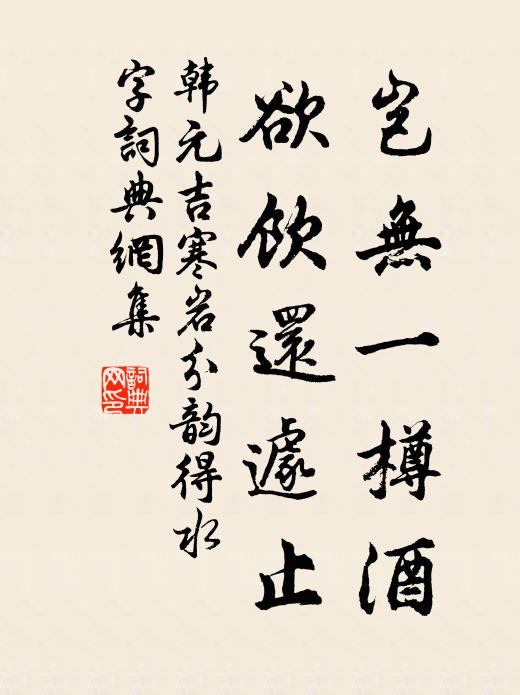 岂無一樽酒
欲飲還遽止
韩元吉寒岩分韵得水
字詞典網集
詞典網印